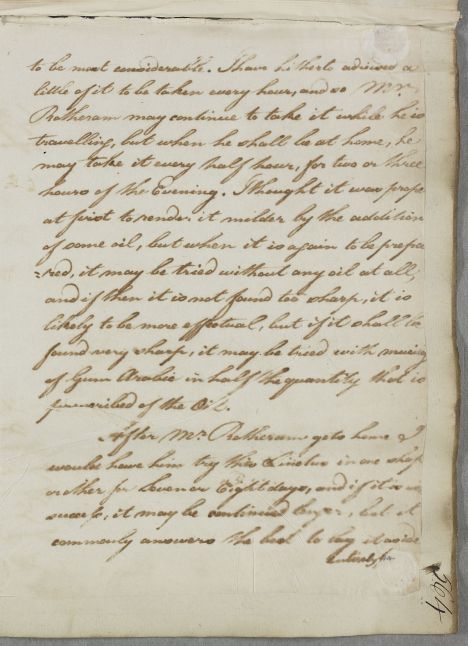 to be most considerable. I have hitherto advised a
little of it to be taken every hour, and so Mr.
Rotheram may continue to take it while he is
travelling, but when he shall be at home, he
may take it every half hour, for two or three
hours of the Evening. I thought it was prope
at first to render it milder by the addition
of some oil, but when it is again to be prepa
=red, it may be tried without any oil at all,
and if then it is not found too sharp, it is
likely to be more effectual, but if it shall be
found very sharp, it may be tried with mucig
of Gum Arabic in half the quantity that is
prescribed of the Oil.
After Mr. Rotheram gets home I
would have him try this Linctus in one shap
or other for Seven or Eight days, and if it is
success, it may be continued longer, but it
commonly answers the best to lay it aside
entirely for
304